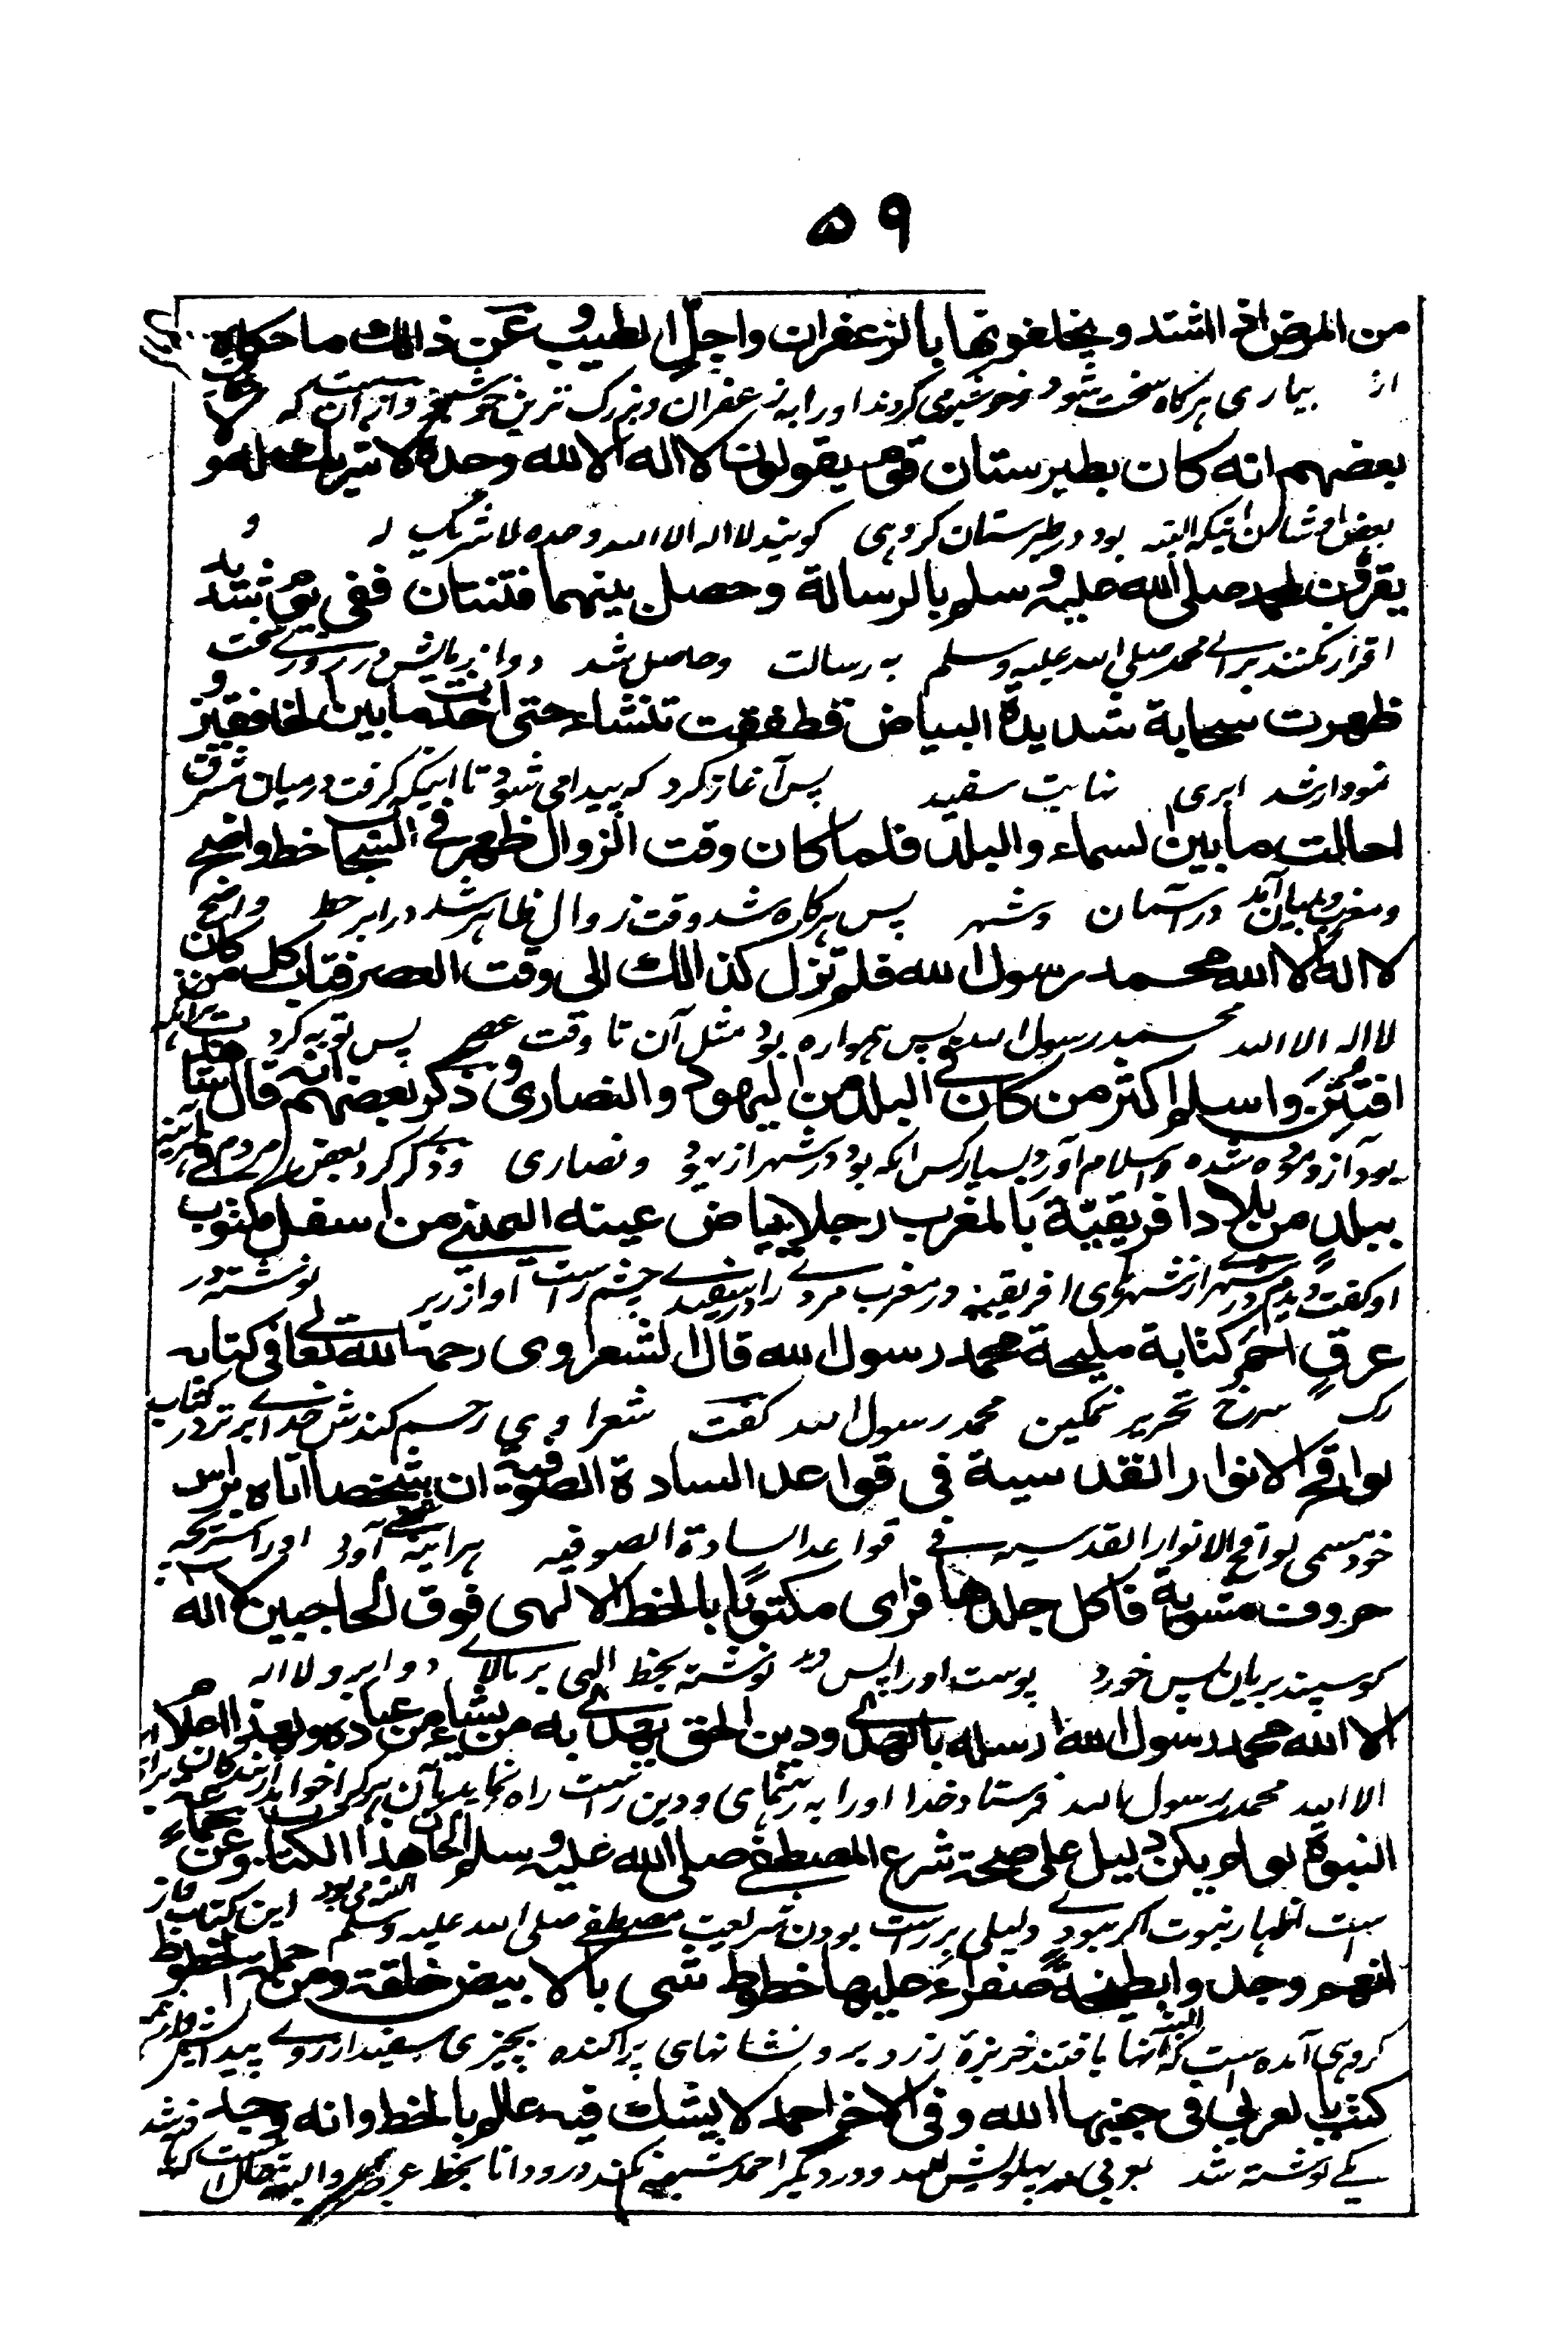 ٥٩
من المرض اخر اشتد و يخلفونها بالزعفران واجل الطيوب عن ذالك ما حكاه
از بیماری هرگاه سخت شود و خوشبو می کردند او را به زعفران و بزرک ترین خوشبو و از آن که
بعضهم انه كان بطبرستان قوم يقولون لا اله الا الله وحده لا شريك له و
بعض ایشان اینکه البته بود در طبرستان کروهی کویند لا اله الا الله وحده لا شریک له و
يقرون لمحمد صلى الله عليه وسلم بالرسالة وحصل بينهما فتنتان ففي يوم شديد
اقرار نکنند برای محمد صلی الله علیه وسلم به رسالت و حاصل شد دو آزمایش در روزی سخت
ظهرت سحابة شديدة البياض قطفقت تنشاء حتى اخذت ما بين الخافقين و
نمودار شد ابری نهایت سفید پس آغاز کرد که پیدا می شود تا اینکه گرفت درمیان شرق
احالت ما بين السماء والبلد فلما كان وقت الزوال ظهر في السحاب خط واضح
و مغرب و میان آمد در آسمان و شهر پس هرکاه شد وقت زوال ظاهر شد در ابر خط واضح
لا اله الا الله محمد رسول الله فلم تزل كذالك الى وقت العصر فتاب كل من كان
لا اله الا الله محمد رسول الله پس همواره بود مثل آن تا وقت عصر پس توبه کرد هرانکه
افتتن واسلم اكثر من كان في البلد من اليهود والنصارى و ذكر بعضهم انه قال
بود آزموده شده و اسلام آورد بسیار کس انکه بود در شهر از یهود و نصاری و ذکر کرد بعض مردم
ببلد من بلاد افريقية بالمغرب رجلا بياض عينه اليمنى من اسفل مكتوب
او کفت دیدم در شهر از شهرهای افریقیه در مغرب مردے را در سفیدے چشم راست او از زیر نوشته در
عرق احمر كتابة مليحة محمد رسول الله قال الشعراوى رحمه الله تعالى في كتابه
رک سرخ تحریر نمکین محمد رسول الله کفت شعراوی رحم کندش خدای برتر در کتاب
لواقح الانوار القدسية في قواعد السادة الصوفية ان شخصا اتاه براس
خود مسمی لواقح الانوار القدسیه فی قواعد السادة الصوفیه هر آئینه شخصے آورد
حروف مشوية فاكل جلدها فراى مكتوبا بالخط الالهى فوق الحاجبين لا اله
کوسپند بریان پس خورد پوست او را پس دید نوشته بخط الهی بر بالای دو ابرو لا اله
الا الله محمد رسول الله ارسله بالهدى ودين الحق يهدى به من يشاء من عباده
الا الله محمد رسول الله فرستاد خدا او را به رهنمای و دین راست راه نماید بآن هر کرا خواهد از بندکان
النبوة لو لم يكن دليل على صحة شرع المصطفى صلى الله عليه وسلم لكان هذا الكتاب وعن
است اظهار نبوت اکر نبودے دلیلی بر راست بودن شریعت مصطفے صلی الله علیه وسلم البته می بود این کتاب
انهم وجدوا بطيخة صفراء عليها خطوط شتى بالابيض خلقة ومن جملة الخطوط
کروهی آمده است که آنها یافتند خربزهٔ زرد بر و نشانهای پراکنده بچیزی سفید از روے پیدایش
كتب بالعربي في جنبها الله وفي الاخر احمد لا يشك فيه عالم بالخط وانه وجد
یکے نوشته شد بعربی در پهلویش الله و در دیکر احمد شبه نکند درو دانا بخط عربی و البته